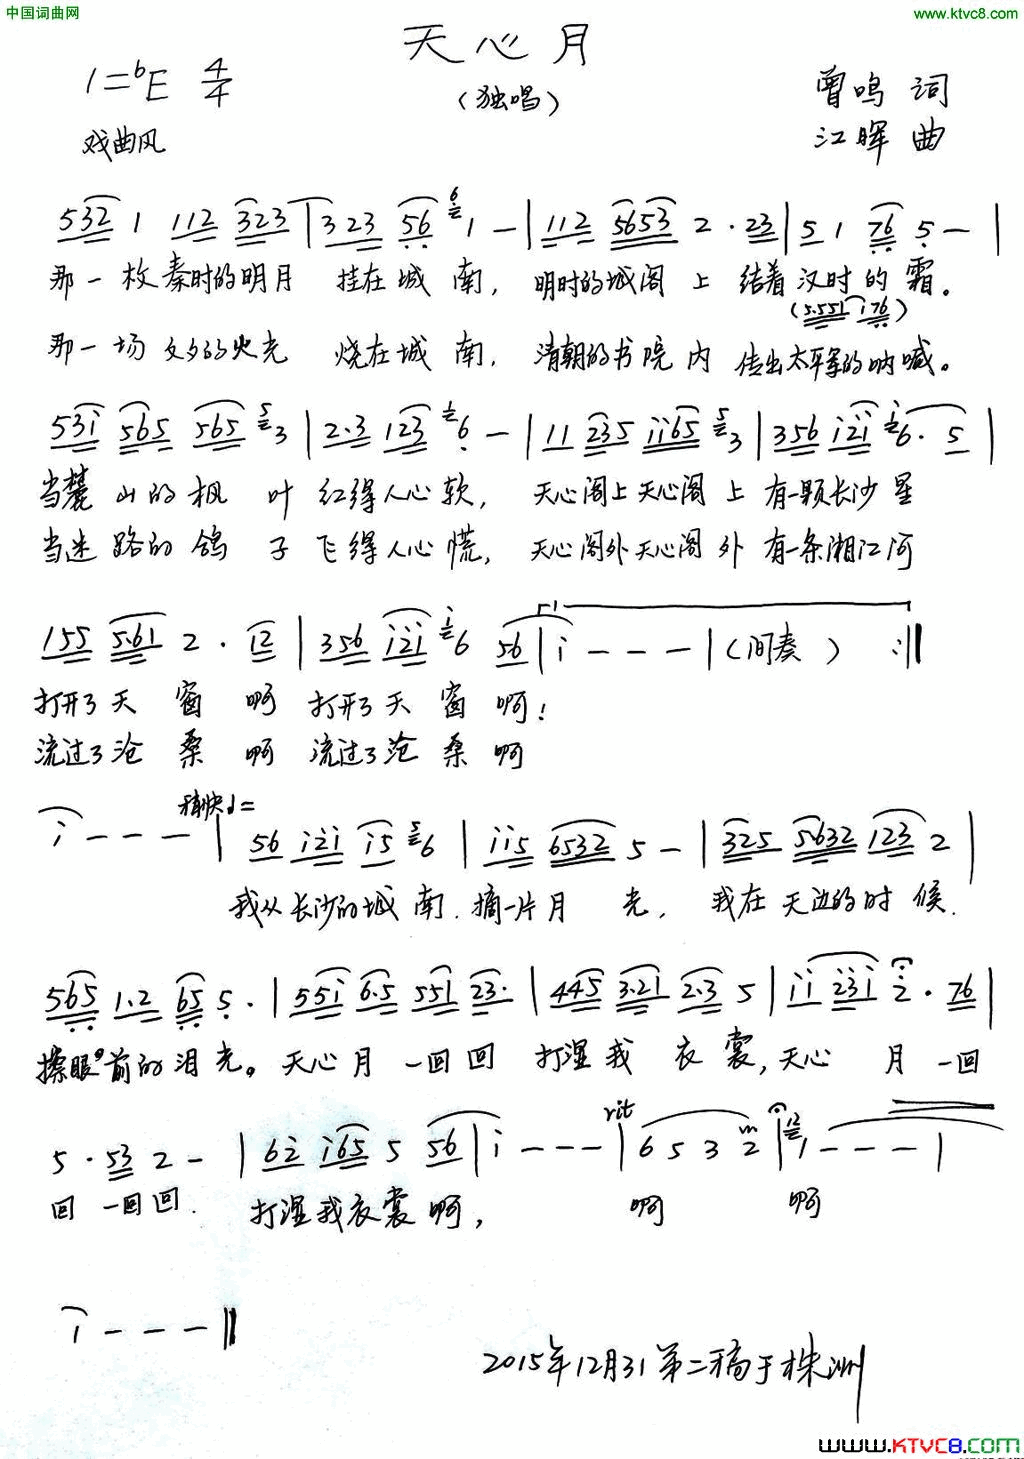 中国词曲网
www.ktvc8.com
天心月
(独唱)
1=bE 4/4
曾鸣 词
戏曲风
江晖 曲
532 1 112 323 | 323 56 6 1 - | 112 5653 2 · 23 | 5 1 76 5 - |
那一枚秦时的明月 挂在城南, 明时的城阁上 结着汉时的霜。
(5·551 i76)
那一场文夕的火光 烧在城南, 清朝的书院内 传出太平军的呐喊。
53i 565 565 5 3 | 2·3 123 1 6 - | 11 235 ii65 5 3 | 356 i2i i 6· 5 |
当麓山的枫叶红得人心软, 天心阁上天心阁上有一颗长沙星
当迷路的鸽子飞得人心慌, 天心阁外天心阁外有一条湘江河
155 5·61 2 · i2 | 356 i2i i 6 56 | i - - - | (间奏) :||
打开了天窗啊 打开了天窗啊!
流过了沧桑啊 流过了沧桑啊
i - - - 稍快♩= | 56 i2i i5 5 6 | ii5 6532 5 - | 325 5632 123 2 |
我从长沙的城南.摘一片月光, 我在天边的时候.
565 1·2 65 5 · | 55i 6·5 551 23· | 445 3·21 2·3 5 | ii 23i 2 · 76 |
擦眼前的泪光。天心月一回回 打湿我衣裳,天心月一回
5 · 53 2 - | 62 i65 5 56 | i - - - | rit 6 5 3 2 | 12 1 - - - |
回一回回. 打湿我衣裳啊, 啊 啊
i - - - ||
2015年12月31第二稿于株洲
www.KTVC8.com